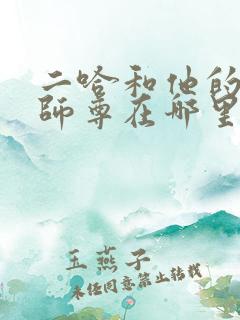 二哈和他的
師尊在哪里
玉燕子
未经同意禁止转载